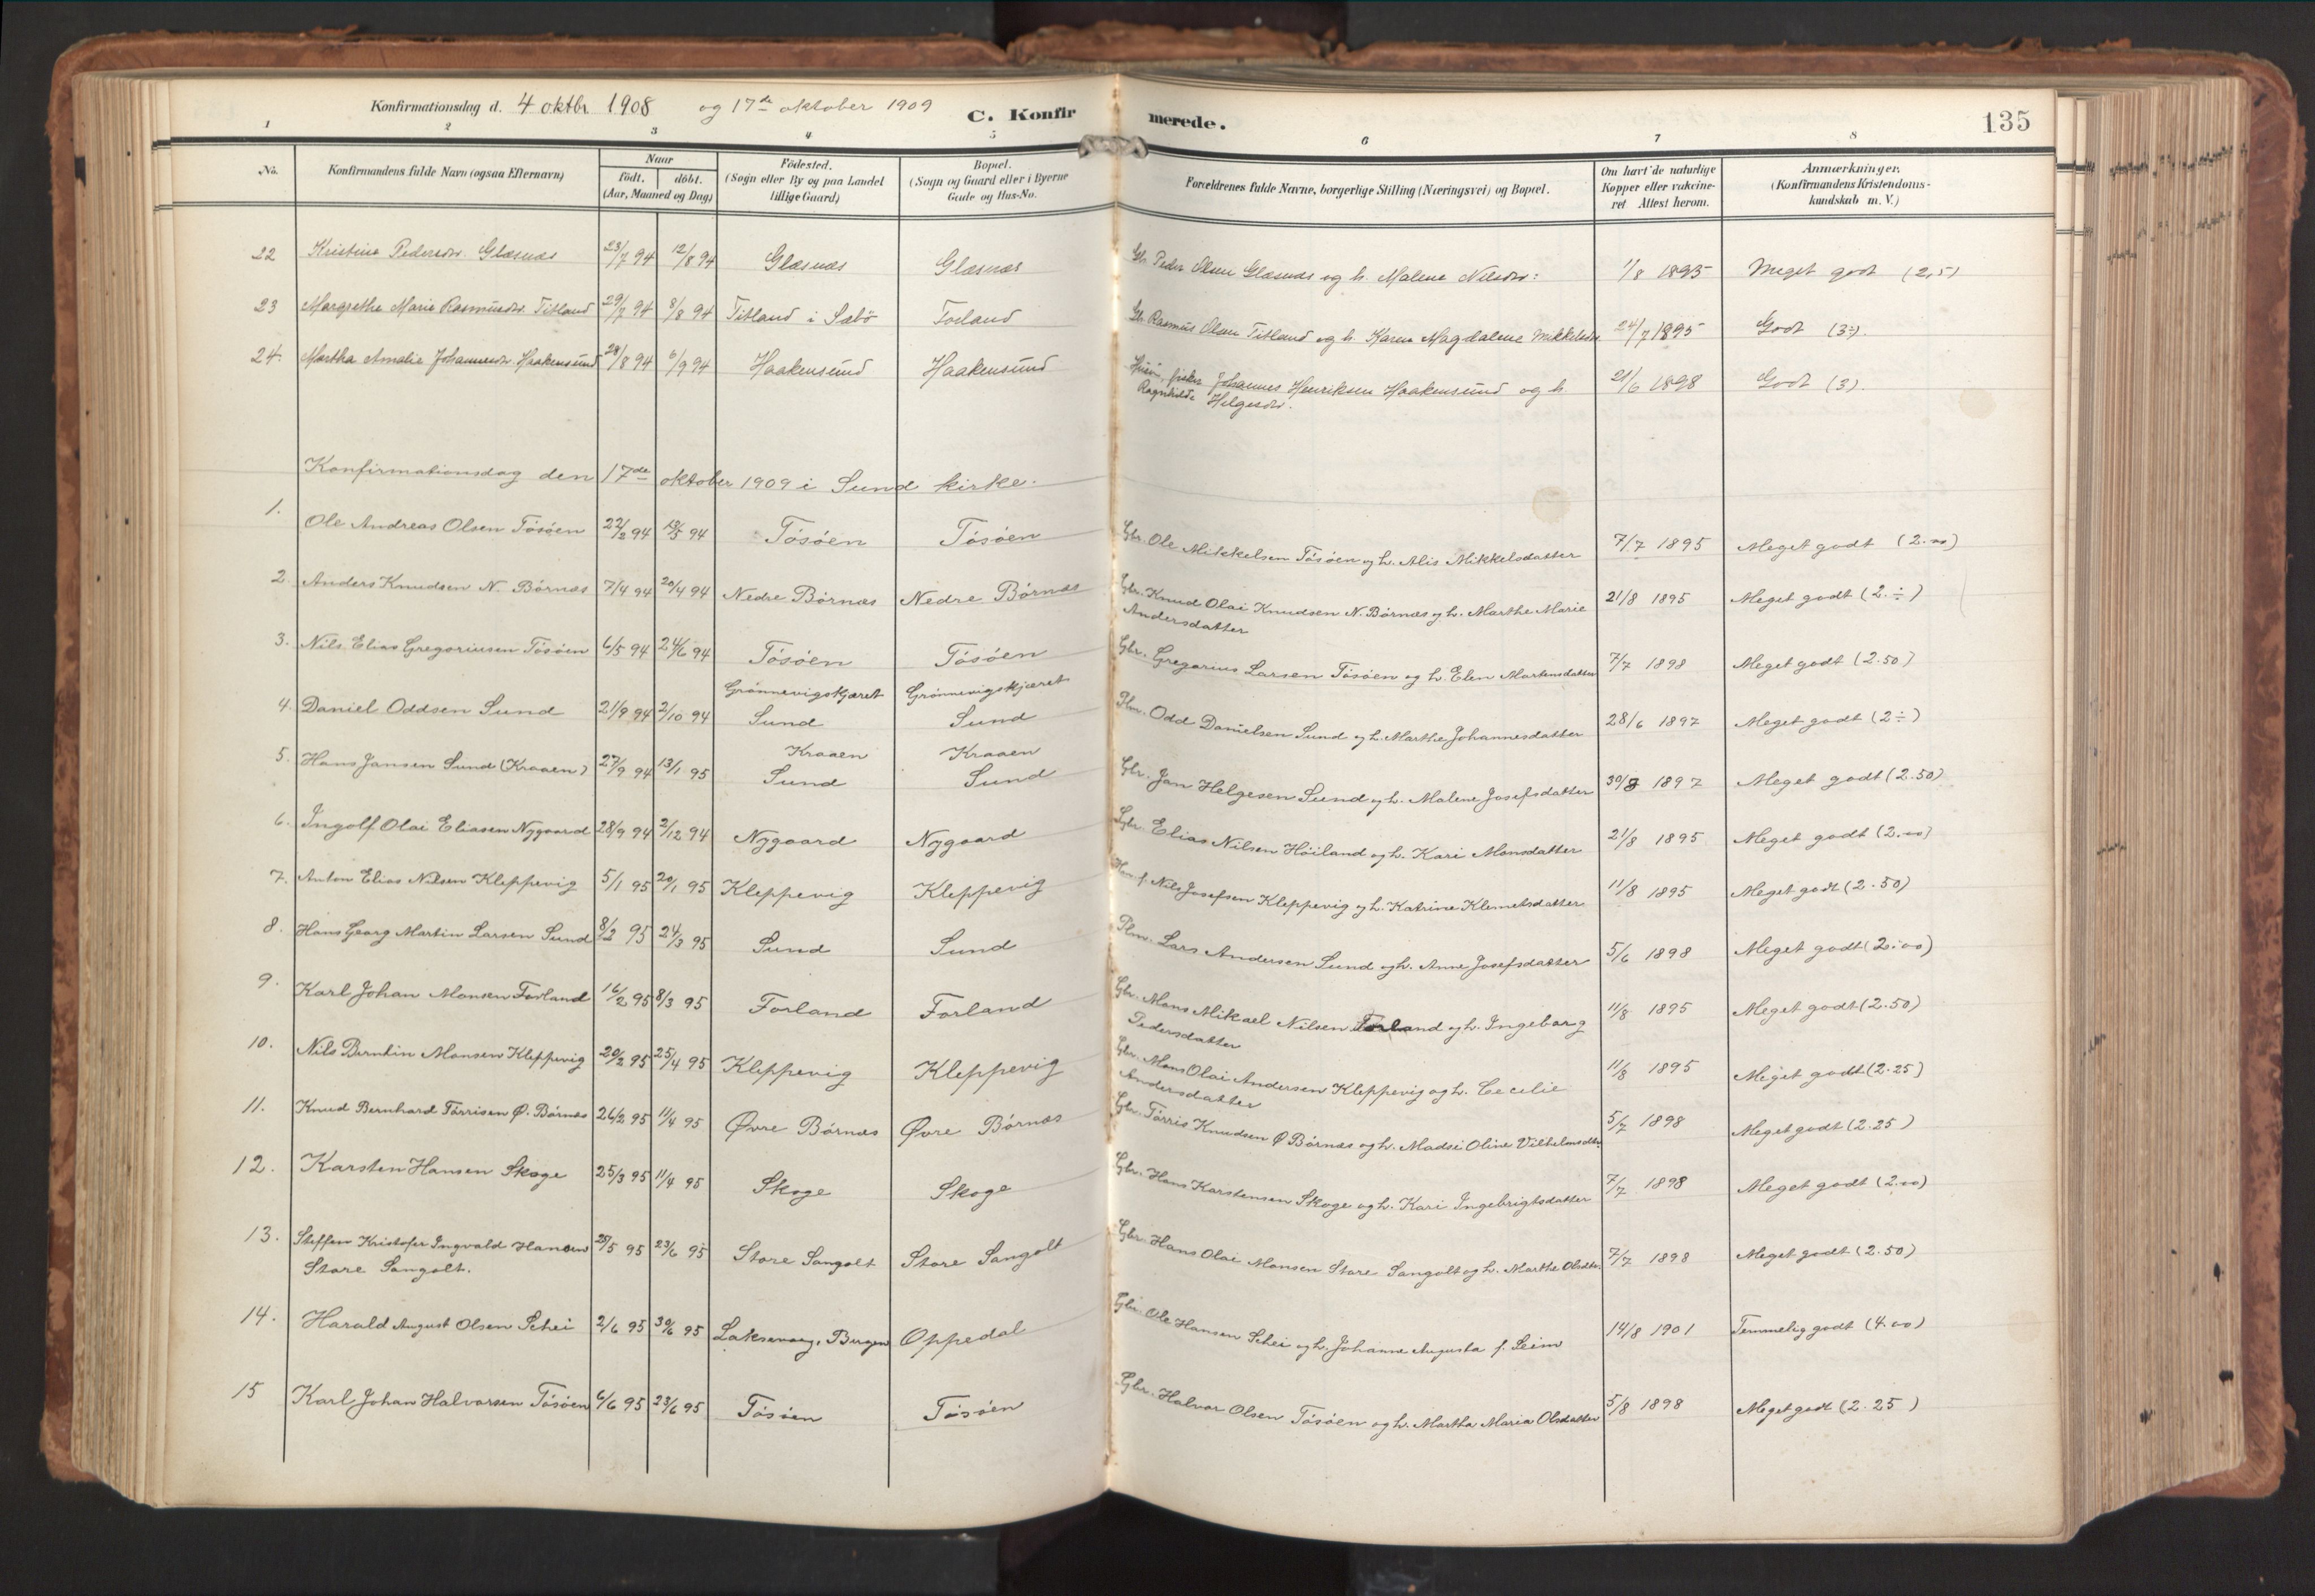 Konfirmationsdag d. 4 oktbr 1908 og 17de oktober 1909
C. Konfirmerede.
135
1 2 3 4 5 6 7 8
No. Konfirmandens fulde Navn (ogsaa Efternavn) Naar født. døbt. (Aar, Maaned og Dag) Födested. (Sogn eller By og paa Landet tillige Gaard) Bopæl. (Sogn og Gaard eller i Byerne Gade og Hus-No. Forældrenes fulde Navne, borgerlige Stilling (Næringsvei) og Bopæl. Om havt de naturlige Kopper eller vaccineret Attest herom. Anmærkninger. (Konfirmandens Kristendomskundskab m. V.)
22 Kristine Pedersdr. Glæsnæs 23/7 94 12/8 94 Glæsnæs Glæsnæs Gbr. Peder Olsen Glæsnæs og h. Malene Nilsdtr: 1/8 1895 Meget godt (2,5)
23 Margrethe Marie Rasmusdr. Titland 29/7 94 8/8 94 Titland i Sæbö Forland Gbr. Rasmus Olsen Titland og h. Karen Magdalene Mikkelsdr. 24/7 1895 Godt (3÷).
24. Martha Amalie Johannesdr. Haakensund 28/8 94 6/9 94 Haakensund Haakensund fisker Johannes Henriksen Haakensund og h.
Ragnhilde Helgesdr. 21/6 1898 Godt (3).
Konfirmationsdag den 17de oktober 1909 i Sund kirke.
1. Ole Andreas Olsen Tösöen 22/2 94 13/5 94 Tösöen Tösöen Gbr. Ole Mikkelsen Tösöen og h. Alis Mikkelsdatter 7/7 1895 Meget godt (2.00)
2. Anders Knudsen N. Börnæs 7/4 94 20/4 94 Nedre Börnæs Nedre Börnæs Gbr. Knud Olai Knudsen N. Börnæs og h. Marthe Marie
Andersdatter 21/8 1895 Meget godt (2.÷)
3. Nils Elias Gregoriusen Tösöen 6/5 94 24/6 94 Tösöen Tösöen Gbr. Gregorius Larsen Tösöen og h. Elen Martensdatter 7/7 1898 Meget godt (2.50)
Grönnevigskjæret Grönnevigskjæret
4. Daniel Oddsen Sund 21/9 94 2/10 94 Sund Sund Plm. Odd Danielsen Sund og h. Marthe Johannesdatter 28/6 1897 Meget godt (2÷)
Kraaen Kraaen
5. Hans Jansen Sund (Kraaen) 27/9 94 13/1 95 Sund Sund Gbr. Jan Helgesen Sund og h. Malene Josefsdatter 30/8 1897 Meget godt (2.50)
6. Ingolf Olai Eliasen Nygaard 28/9 94 2/12 94 Nygaard Nygaard Gbr. Elias Nilsen Höiland og h. Kari Monsdatter 21/8 1895 Meget godt (2.00)
7. Anton Elias Nilsen Kleppevig 5/1 95 20/1 95 Kleppevig Kleppevig Nils Josefsen Kleppevig og h. Katrine Klemetsdatter 11/8 1895 Meget godt (2.50)
8. Hans Georg Martin Larsen Sund 8/2 95 24/3 95 Sund Sund Plm. Lars Andersen Sund og h. Anne Josefsdatter 5/6 1898 Meget godt (2.00)
9. Karl Johan Monsen Forland 16/2 95 8/3 95 Forland Forland Gbr. Mons Mikael Nilsen Forland og h. Ingeborg
Pedersdatter 11/8 1895 Meget godt (2.50)
10. Nils Berntin Monsen Kleppevig 20/2 95 25/4 95 Kleppevig Kleppevig Gbr. Mons Olai Andersen Kleppevig og h. Cecilie
Andersdatter 11/8 1895 Meget godt (2.25)
11. Knud Bernhard Törrisen Ø. Börnæs 26/2 95 11/4 95 Øvre Börnæs Øvre Börnæs Gbr. Törris Knudsen Ø Börnæs og h. Madsi Oline Vilhelmsdtr. 5/7 1898 Meget godt (2.25)
12. Karsten Hansen Skoge 25/3 95 11/4 95 Skoge Skoge Gbr. Hans Karstensen Skoge og h. Kari Ingebrigtsdatter 7/7 1898 Meget godt (2.00)
13. Steffen Kristofer Ingvald Hansen
Store Sangolt. 25/5 95 23/6 95 Store Sangolt Store Sangolt Gbr. Hans Olai Monsen Store Sangolt og h. Marthe Olsdtr. 7/7 1898 Meget godt (2.50)
14. Harald August Olsen Schei 2/6 95 30/6 95 Laksevaag, Bergen Oppedal Gbr. Ole Hansen Schei og h. Johanne Augusta f. Leim 14/8 1901 Temmelig godt (4.00)
15 Karl Johan Halvorsen Tösöen 6/6 95 23/6 95 Tösöen Tösöen Gbr. Halvor Olsen Tösöen og h. Martha Maria Olsdatter 5/8 1898 Meget godt (2.25)